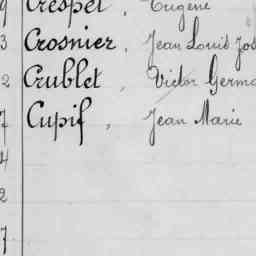 9 Crespel, Eugène
3 Crosnier, Jean Louis Jos
2 Crublet, Victor Germa
7 Cupif, Jean Marie
4
2
7